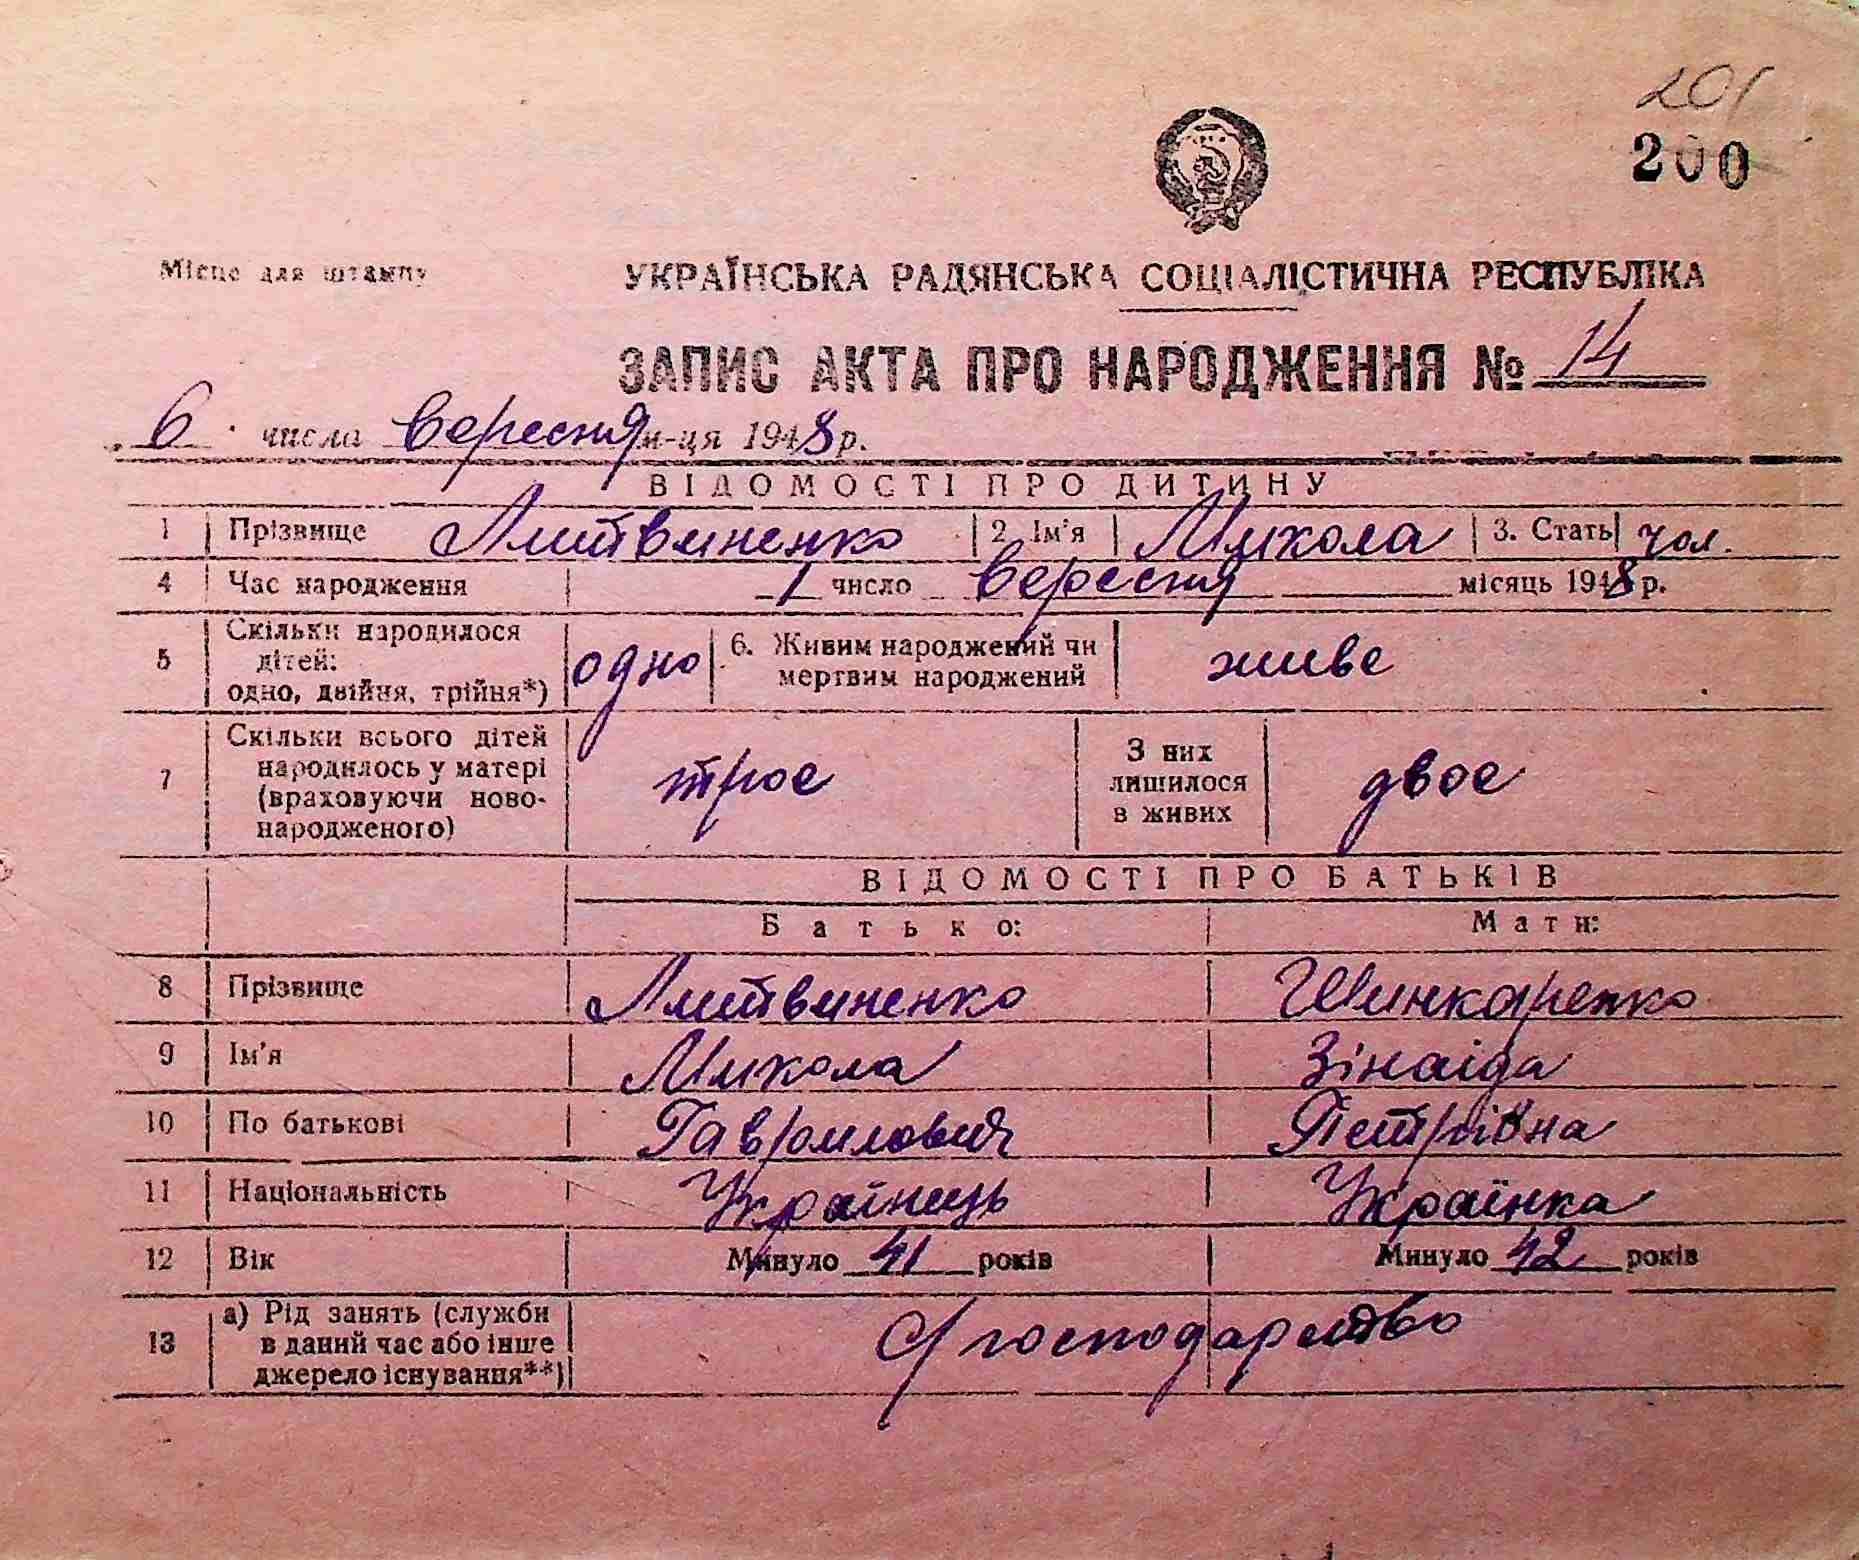 201
200
Місце для штампу
УКРАЇНСЬКА РАДЯНСЬКА СОЦІАЛІСТИЧНА РЕСПУБЛІКА
ЗАПИС АКТА ПРО НАРОДЖЕННЯ № 14
6 числа вересня м-ця 1948 р.
ВІДОМОСТІ ПРО ДИТИНУ
1 Прізвище Литвиненко 2. Ім'я Микола 3. Стать чол.
4 Час народження 1 число вересня місяць 1948 р.
5 Скільки народилося дітей: одно, двійня, трійня*) одно 6. Живим народжений чи мертвим народжений живе
7 Скільки всього дітей народилось у матері (враховуючи ново-народженого) троє З них лишилося в живих двоє
ВІДОМОСТІ ПРО БАТЬКІВ
Батько: Мати:
8 Прізвище Литвиненко Шинкаренко
9 Ім'я Микола Зінаіда
10 По батькові Гаврилович Петрівна
11 Національність Українець Українка
12 Вік Минуло 41 років Минуло 42 років
13 а) Рід занять (служби в даний час або інше джерело існування**) С/господарство